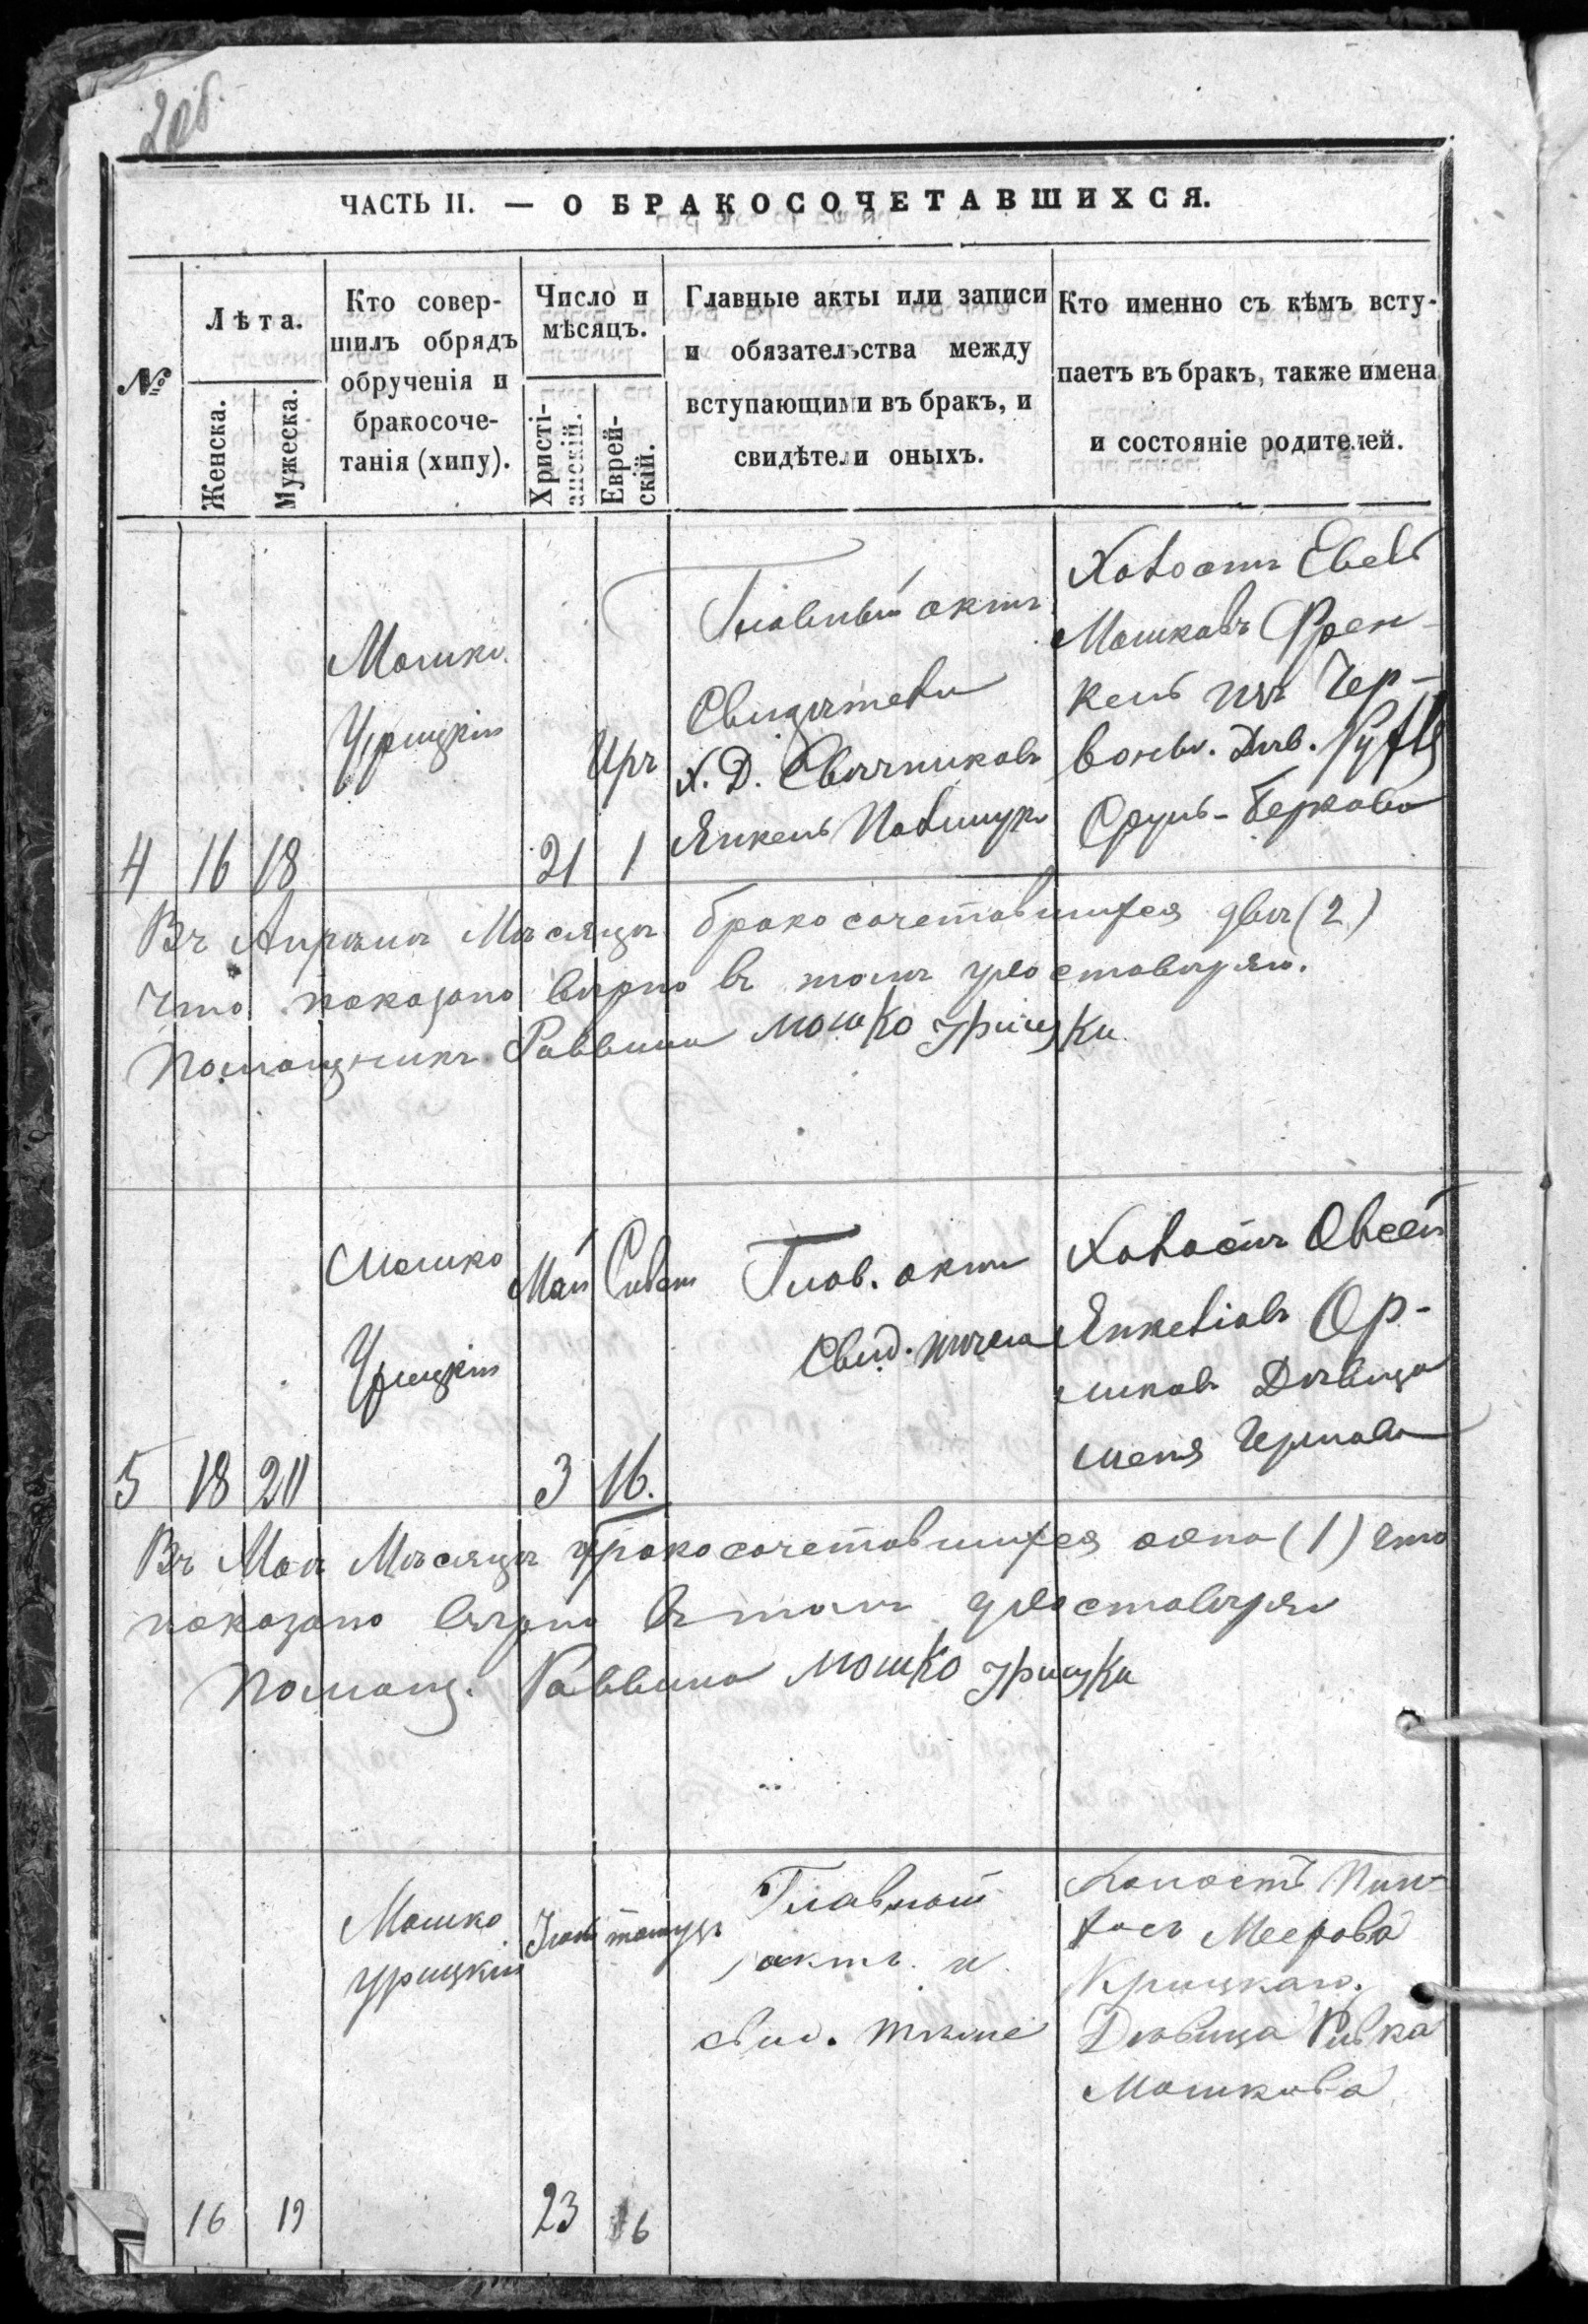 2об.
ЧАСТЬ II. — О БРАКОСОЧЕТАВШИХСЯ.
№
Лѣта.
Женска.
Мужеска.
Кто совер-
шилъ обрядъ
обрученія и
бракосоче-
танія (хипу).
Число и
мѣсяцъ.
Христі-
анскій.
Еврей-
скій.
Главные акты или записи
и обязательства между
вступающими въ бракъ, и
свидѣтели оныхъ.
Кто именно съ кѣмъ всту-
паетъ въ бракъ, также имена
и состояніе родителей.
4
16
18
Мошко
Урицкій
21
Иръ
1
Главный актъ
Свидѣтели
Х. Д. Свѣчниковъ
Янкель
Холостъ
Мошковъ Френ-
кель изъ Чер-
Дѣв.
Сруль-Беркова
Въ Апрѣлѣ Мѣсяцѣ бракосочетавшихся двѣ (2)
Что показано вѣрно въ томъ удостовѣряю.
Помощникъ Раввина Мошко Урицки
5
18
20
Мошко
Урицкій
Май
3
Сиван
16.
Глав. актъ
Свид. тѣже
Холостъ Овсей
Янкеліовъ Ор-
ликовъ Дѣвица
Въ Маѣ Мѣсяцѣ бракосочетавшихся одна (1) что
показано вѣрно въ томъ удостовѣряю
Помощ. Раввина Мошко Урицки
16
19
Мошко
Урицкій
23
тамузъ
16
Главный
актъ и
свид. тѣже
Холостъ Пин-
хосъ Мееровъ
Крицкаго.
Дѣвица Ривка
Мошкова